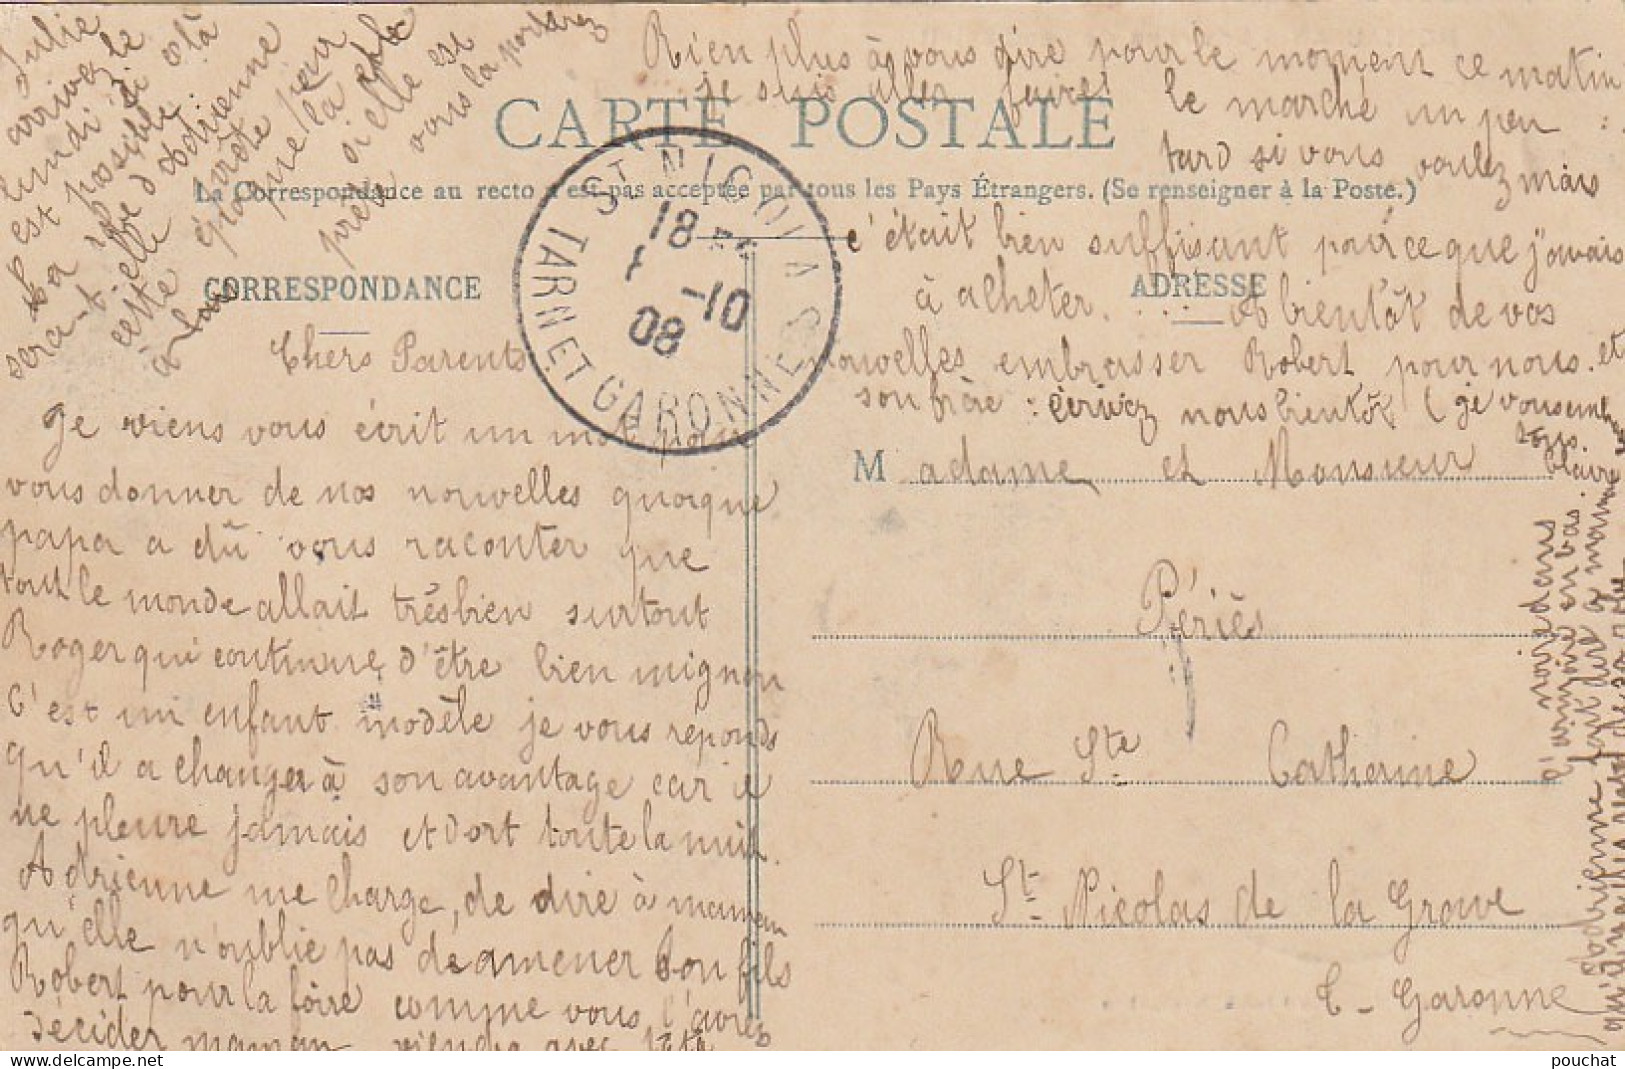 CARTE POSTALE
La Correspondance au recto n'est pas acceptée par tous les Pays Étrangers. (Se renseigner à la Poste.)
CORRESPONDANCE
ADRESSE
ST NICOLAS
18
1 -10
08
TARN ET GARONNE
Chers Parents
Je viens vous écrit un mot pour
vous donner de nos nouvelles quoique
papa a dû vous raconter que
tout le monde allait très bien surtout
Roger qui continue d'être bien mignon
C'est un enfant modèle je vous réponds
qu'il a changer à son avantage car il
ne pleure jamais et dort toute la nuit.
Adrienne me charge, de dire à maman
qu'elle n'oublie pas de amener son fils
Robert pour la foire comme vous l'avez
décider maman viendra avec
Julie
arrivez le
lundi si
est possible.
la robe d'Adrienne
sera-t-elle
cette
prête pour
que la
si elle est
prête vous la porterez
Rien plus à vous dire pour le moment ce matin
je suis aller faire
le marché un peu
tard si vous voulez mais
c'était bien suffisant pour ce que j'avais
à acheter. . . . A bientôt de vos
nouvelles embrasser Robert pour nous. et
son frère : écrivez nous bientôt (je vous embrasse
tous.
Claire
M adame et Monsieur
Périès
Rue Ste Catherine
St Nicolas de la Grave
T-Garonne
Adrienne fait dire à maman
pouchat